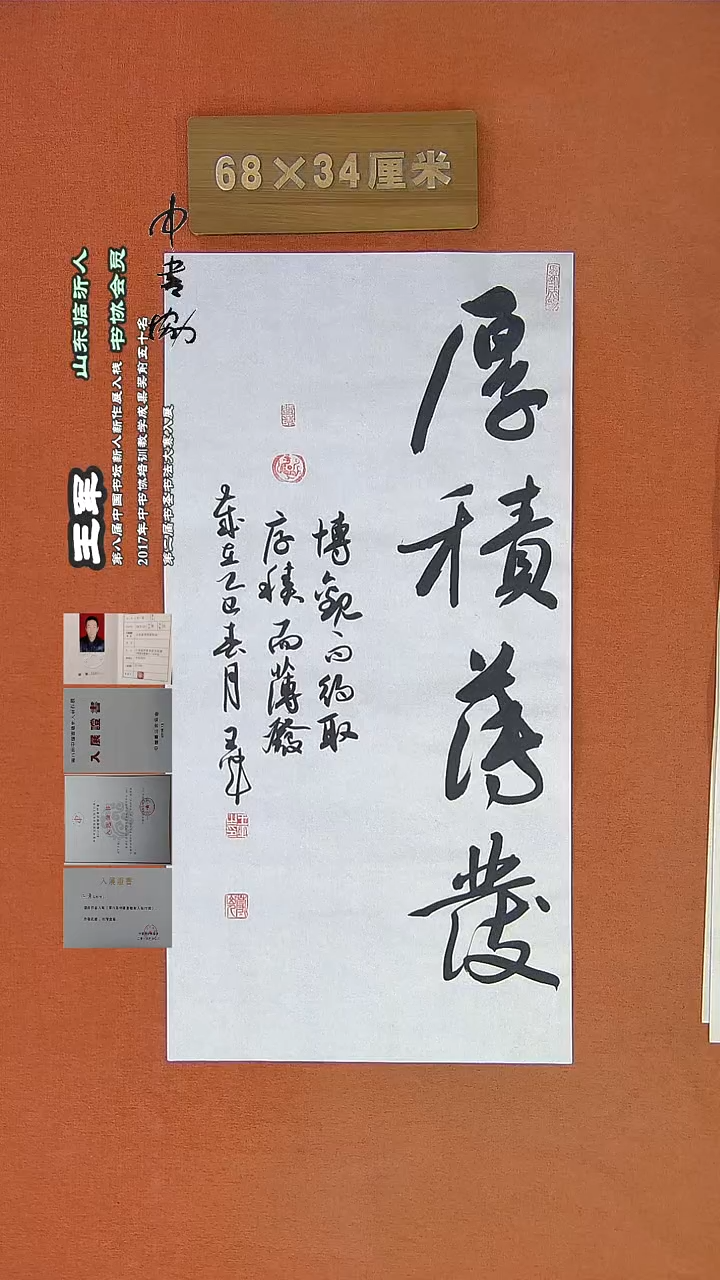 68×34厘米
中书协
山东临沂人
书协会员
王军
第八届中国书坛新人新作展入展
2017年中书协培训教学成果奖前五十名
第二届书圣书法大赛入展
厚積薄發
博觀而約取
厚積而薄發
歲在乙巳春月 王軍
入展證書
入展證書